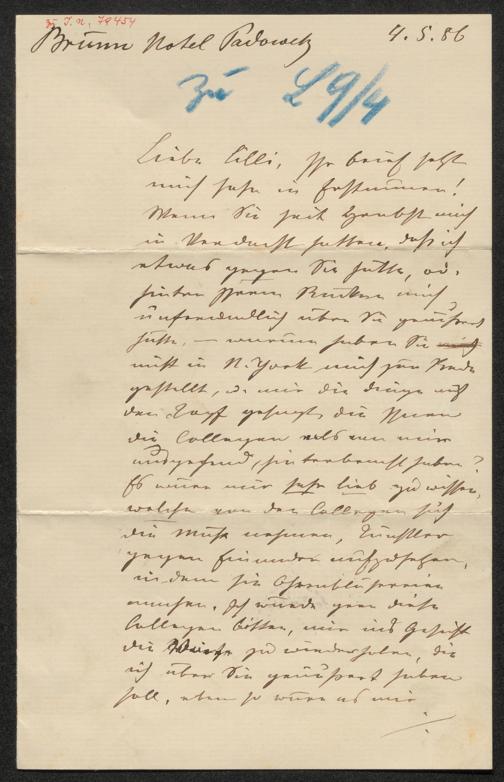 zu I. N. 79454
Brünn Hotel Padowetz 4. 5. 86
Zu L 9/4
Liebe Lilli, Ihr Brief setzt
mich sehr in Erstaunen!
Wenn Sie seit Herbst mich
in Verdacht hatten, daß ich
etwas gegen Sie hätte, od.
hinter Ihrem Rücken mich
unfreundlich über Sie geäußert
hätte, — warum haben Sie
nicht in N. York mich zur Rede
gestellt, u. mir die Dinge auf
den Kopf gesagt, die Ihnen
die Collegen als von mir
ausgehend, hinterbracht haben?
Es wäre mir sehr lieb zu wissen,
welche von den Collegen sich
die Mühe nehmen, Künstler
gegen Einander aufzuhetzen,
in dem sie Ohrenbläsereien
machen. Ich würde gern diese
Collegen bitten, mir ins Gesicht
die Worte zu wiederholen, die
ich über Sie geäußert haben
soll, eben so wäre es mir